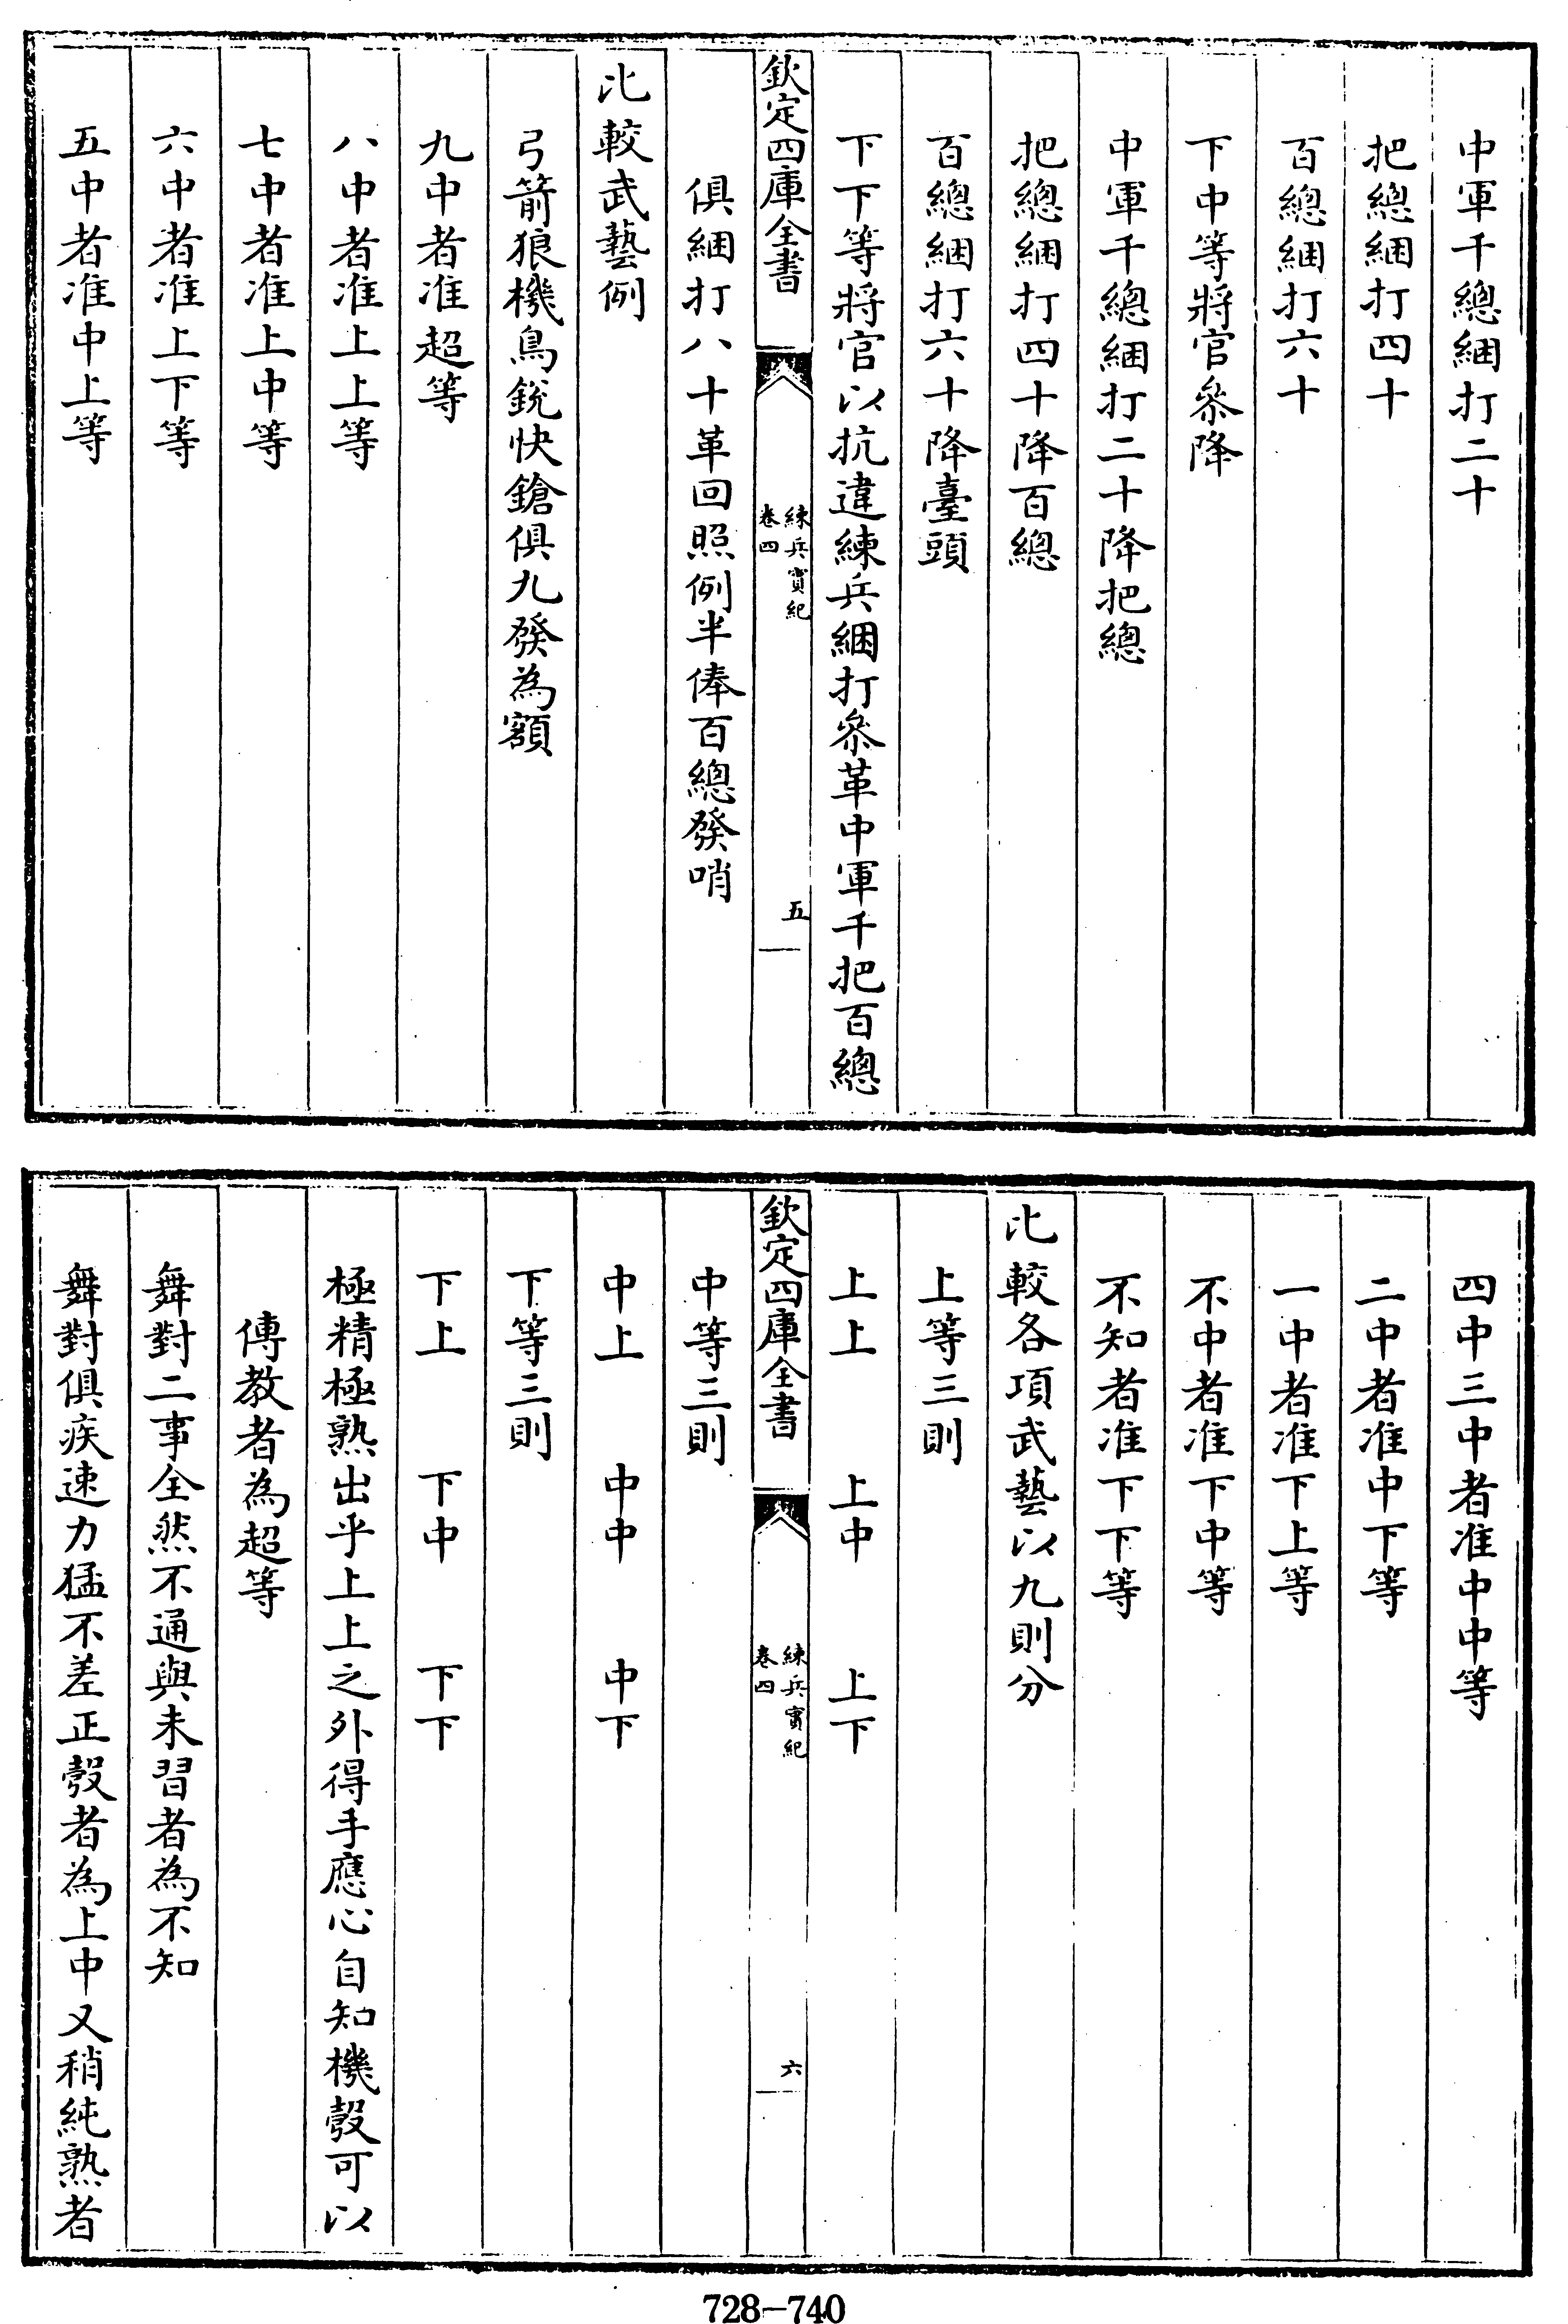 中軍千總綑打二十
把總綑打四十
百總綑打六十
下中等將官叅降
中軍千總綑打二十降把總
把總綑打四十降百總
百總綑打六十降臺頭
下下等將官以抗違練兵綑打叅革中軍千把百總
欽定四庫全書
練兵實紀
卷四
五
俱綑打八十革回照例半俸百總發哨
比較武藝例
弓箭狼機鳥銃快鎗俱九發為額
九中者准超等
八中者准上上等
七中者准上中等
六中者准上下等
五中者准中上等
四中三中者准中中等
二中者准中下等
一中者准下上等
不中者准下中等
不知者准下下等
比較各項武藝以九則分
上等三則
上上 上中 上下
欽定四庫全書
練兵實紀
卷四
六
中等三則
中上 中中 中下
下等三則
下上 下中 下下
極精極熟出乎上上之外得手應心自知機彀可以
傳教者為超等
舞對二事全然不通與未習者為不知
舞對俱疾速力猛不差正彀者為上中又稍純熟者
728-740